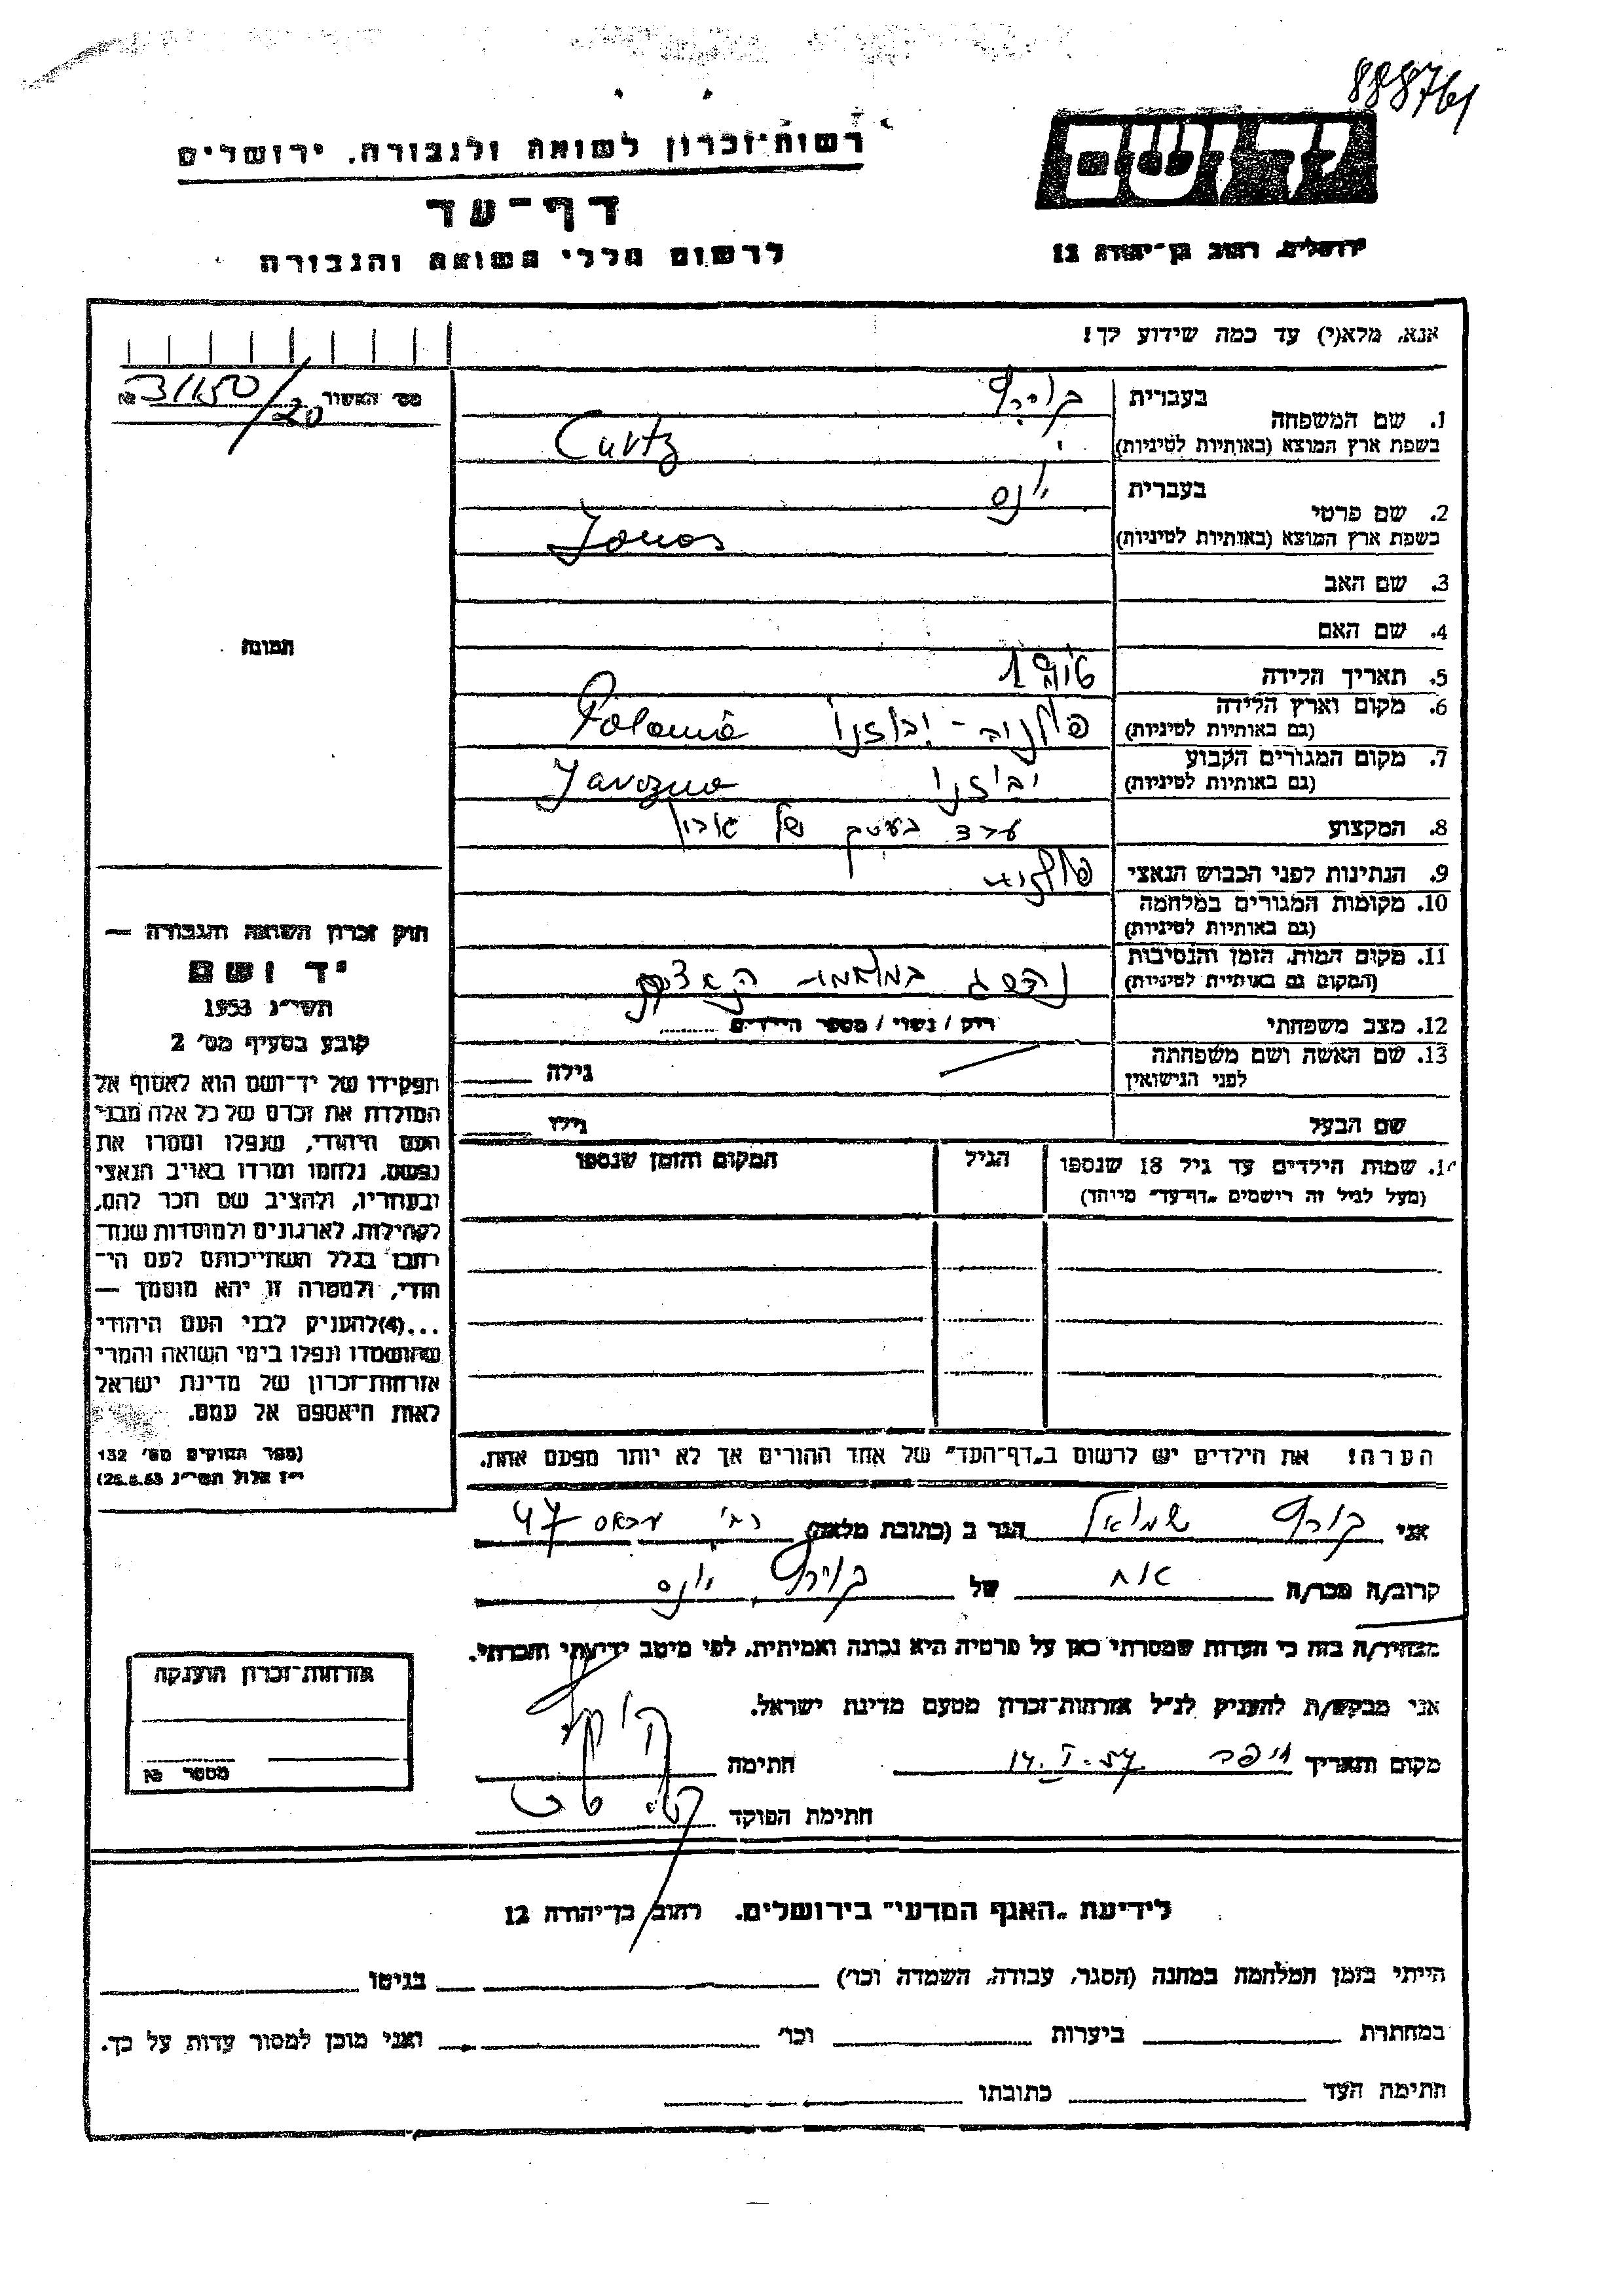 888761
רשות־זכרון לשואה ולגבורה, ירושלים
יד ושם
דף־עד
לרשום חללי השואה והגבורה
ירושלים, רחוב בן־יהודה 12
אנא, מלא(י) עד כמה שידוע לך!
מס׳ האשור № 31150/20
1. שם המשפחה
בעברית
בשפת ארץ המוצא (באותיות לטיניות) Curtz
2. שם פרטי
בעברית יונס
בשפת ארץ המוצא (באותיות לטיניות) Jonas
3. שם האב
4. שם האם
תמונה
5. תאריך הלידה
6. מקום וארץ הלידה
(גם באותיות לטיניות) Polonia
7. מקום המגורים הקבוע
(גם באותיות לטיניות) Javozno
8. המקצוע של
9. הנתינות לפני הכבוש הנאצי פולנית
10. מקומות המגורים במלחמה
(גם באותיות לטיניות)
11. מקום המות, הזמן והנסיבות
(המקום גם באותיות לטיניות) נהרג במלחמת
12. מצב משפחתי רוק / נשוי / מספר הילדים
13. שם האשה ושם משפחתה
לפני הנישואין גילה
שם הבעל גילו
14. שמות הילדים עד גיל 18 שנספו הגיל המקום והזמן שנספו
(מעל לגיל זה רושמים „דף־עד״ מיוחד)
חוק זכרון השואה והגבורה —
יד ושם
תשי״ג 1953
קובע בסעיף מס׳ 2
תפקידו של יד־ושם הוא לאסוף אל
המולדת את זכרם של כל אלה מבני
העם היהודי, שנפלו ומסרו את
נפשם, נלחמו ומרדו באויב הנאצי
ובעוזריו, ולהציב שם וזכר להם,
לקהילות, לארגונים ולמוסדות שנח־
רבו בגלל השתייכותם לעם הי־
הודי, ולמטרה זו יהא מוסמך —
...(4)להעניק לבני העם היהודי
שהושמדו ונפלו בימי השואה והמרי
אזרחות־זכרון של מדינת ישראל
לאות היאספם אל עמם.
(ספר החוקים מס׳ 132
י״ז אלול תשי״ג 28.8.53)
הערה! את הילדים יש לרשום ב„דף־העד״ של אחד ההורים אך לא יותר מפעם אחת.
אני קורץ שמואל הגר ב (כתובת מלאה) רח׳ עבאס 47
קרוב/ה מכר/ה אח של יונס
מצהיר/ה בזה כי העדות שמסרתי כאן על פרטיה היא נכונה ואמיתית, לפי מיטב ידיעתי והכרתי.
אני מבקש/ת להעניק לנ״ל אזרחות־זכרון מטעם מדינת ישראל.
מקום ותאריך חיפה 14.I.57 חתימה
חתימת הפוקד
אזרחות־זכרון הוענקה
מספר №
לידיעת „האגף המדעי״ בירושלים, רחוב בן־יהודה 12
הייתי בזמן המלחמה במחנה (הסגר, עבודה, השמדה וכו׳) בגיטו
במחתרת ביערות וכו׳ ואני מוכן למסור עדות על כך.
חתימת העד כתובתו